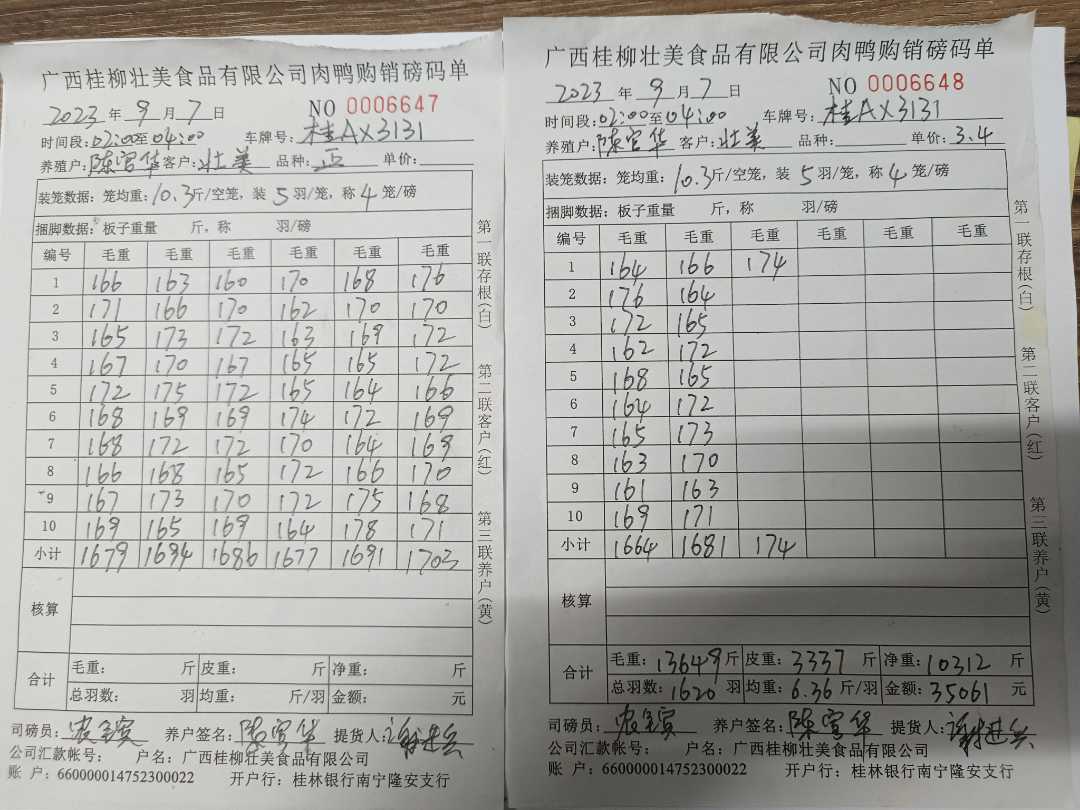 广西桂柳壮美食品有限公司肉鸭购销磅码单
2023 年 9 月 7 日 NO 0006647
时间段:02:00至04:00 车牌号:桂AX3131
养殖户:陈官华 客户:壮美 品种:正 单价:
装笼数据:笼均重:10.3斤/空笼,装 5 羽/笼,称 4 笼/磅
捆脚数据:板子重量 斤,称 羽/磅
编号 毛重 毛重 毛重 毛重 毛重 毛重
1 166 163 160 170 168 176
2 171 166 170 162 170 170
3 165 173 172 163 169 172
4 167 170 167 165 165 172
5 172 175 172 165 164 166
6 168 169 169 174 172 169
7 168 172 172 170 164 169
8 166 168 165 172 166 170
9 167 173 170 172 175 168
10 169 165 169 164 178 171
小计 1679 1694 1686 1677 1691 1703
核算
合计 毛重: 斤 皮重: 斤 净重: 斤
总羽数: 羽 均重: 斤/羽 金额: 元
司磅员: 养户签名:陈官华 提货人:
公司汇款帐号: 户名:广西桂柳壮美食品有限公司
账 户:660000014752300022 开户行:桂林银行南宁隆安支行
第一联存根(白) 第二联客户(红) 第三联养户(黄)
广西桂柳壮美食品有限公司肉鸭购销磅码单
2023 年 9 月 7 日 NO 0006648
时间段:02:00至04:00 车牌号:桂AX3131
养殖户:陈官华 客户:壮美 品种: 单价:3.4
装笼数据:笼均重:10.3斤/空笼,装 5 羽/笼,称 4 笼/磅
捆脚数据:板子重量 斤,称 羽/磅
编号 毛重 毛重 毛重 毛重 毛重 毛重
1 164 166 174
2 176 164
3 172 165
4 162 172
5 168 165
6 164 172
7 165 173
8 163 170
9 161 163
10 169 171
小计 1664 1681 174
核算
合计 毛重:13649斤 皮重:3337 斤 净重:10312 斤
总羽数:1620 羽 均重:6.36 斤/羽 金额:35061 元
司磅员: 养户签名:陈官华 提货人:
公司汇款帐号: 户名:广西桂柳壮美食品有限公司
账 户:660000014752300022 开户行:桂林银行南宁隆安支行
第一联存根(白) 第二联客户(红) 第三联养户(黄)